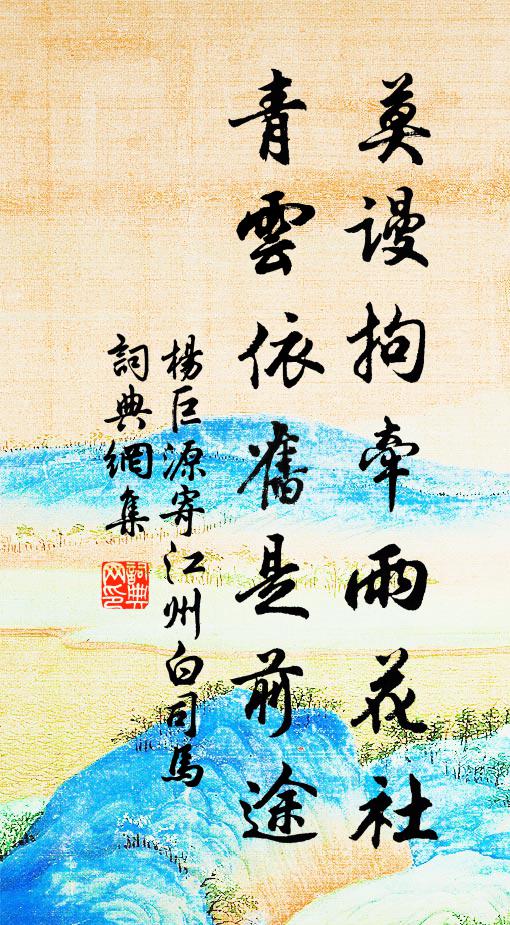 莫謾拘牽雨花社
青雲依舊是前途
楊巨源寄江州白司馬
詞典網集
詞典
网印